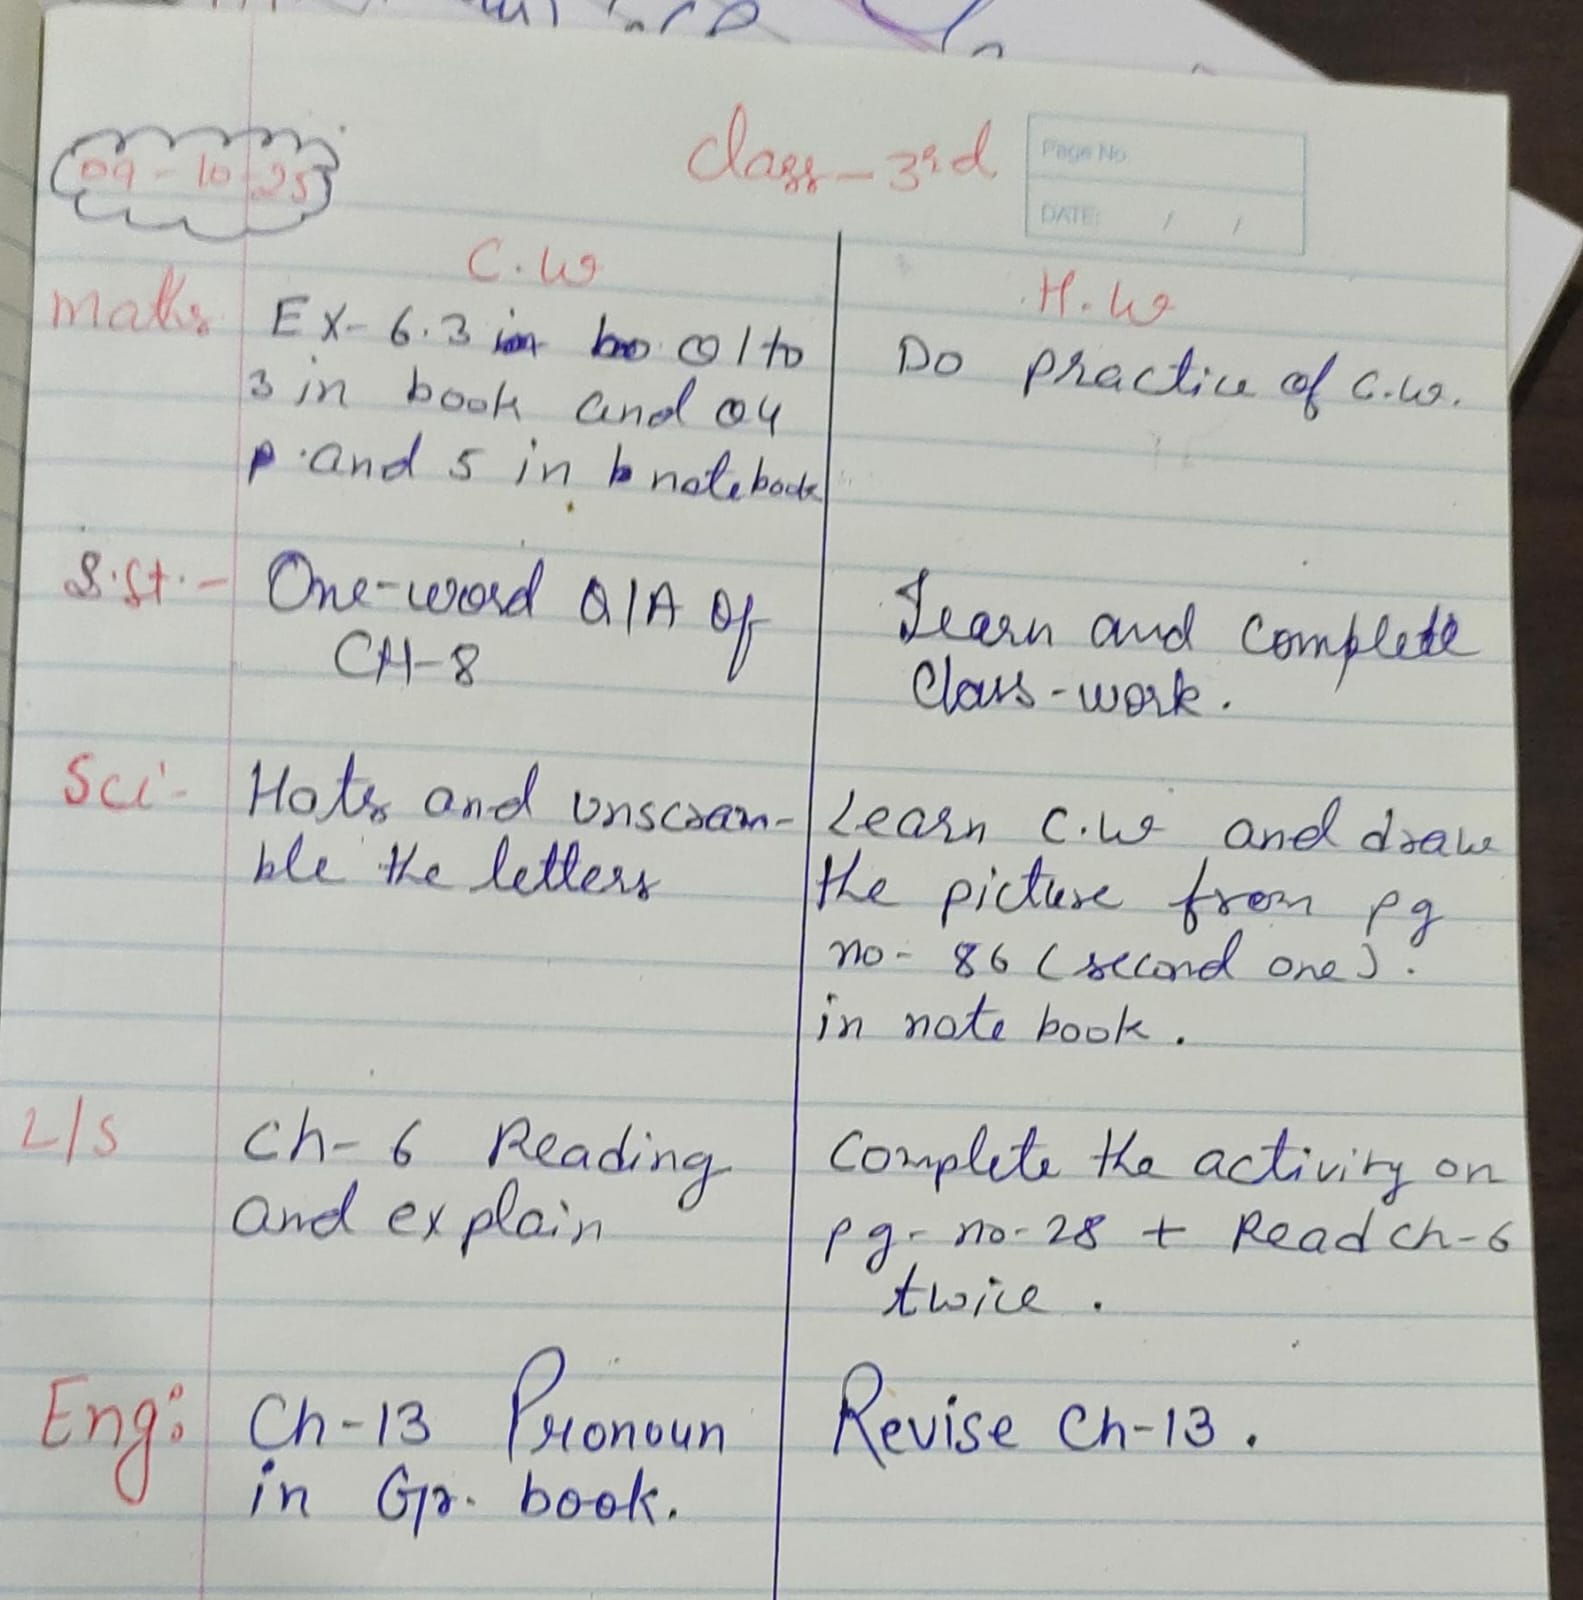 09-10-25
Class-3rd
Page No.
DATE: / /
C.W
H.W
Maths Ex-6.3 in Q1to
3 in book and Q4
p and 5 in b notebook
Do practice of C.W.
S.St.- One-word Q/A Of
CH-8
Learn and Complete
Class-work.
Sci- Hots and unscram-
ble the letters
Learn C.W and draw
the picture from pg
no- 86 (second one).
in note book.
L/S Ch-6 Reading
and explain
Complete the activity on
pg-no-28 + Read ch-6
twice.
Eng: Ch-13 Pronoun
in Gr. book.
Revise Ch-13.